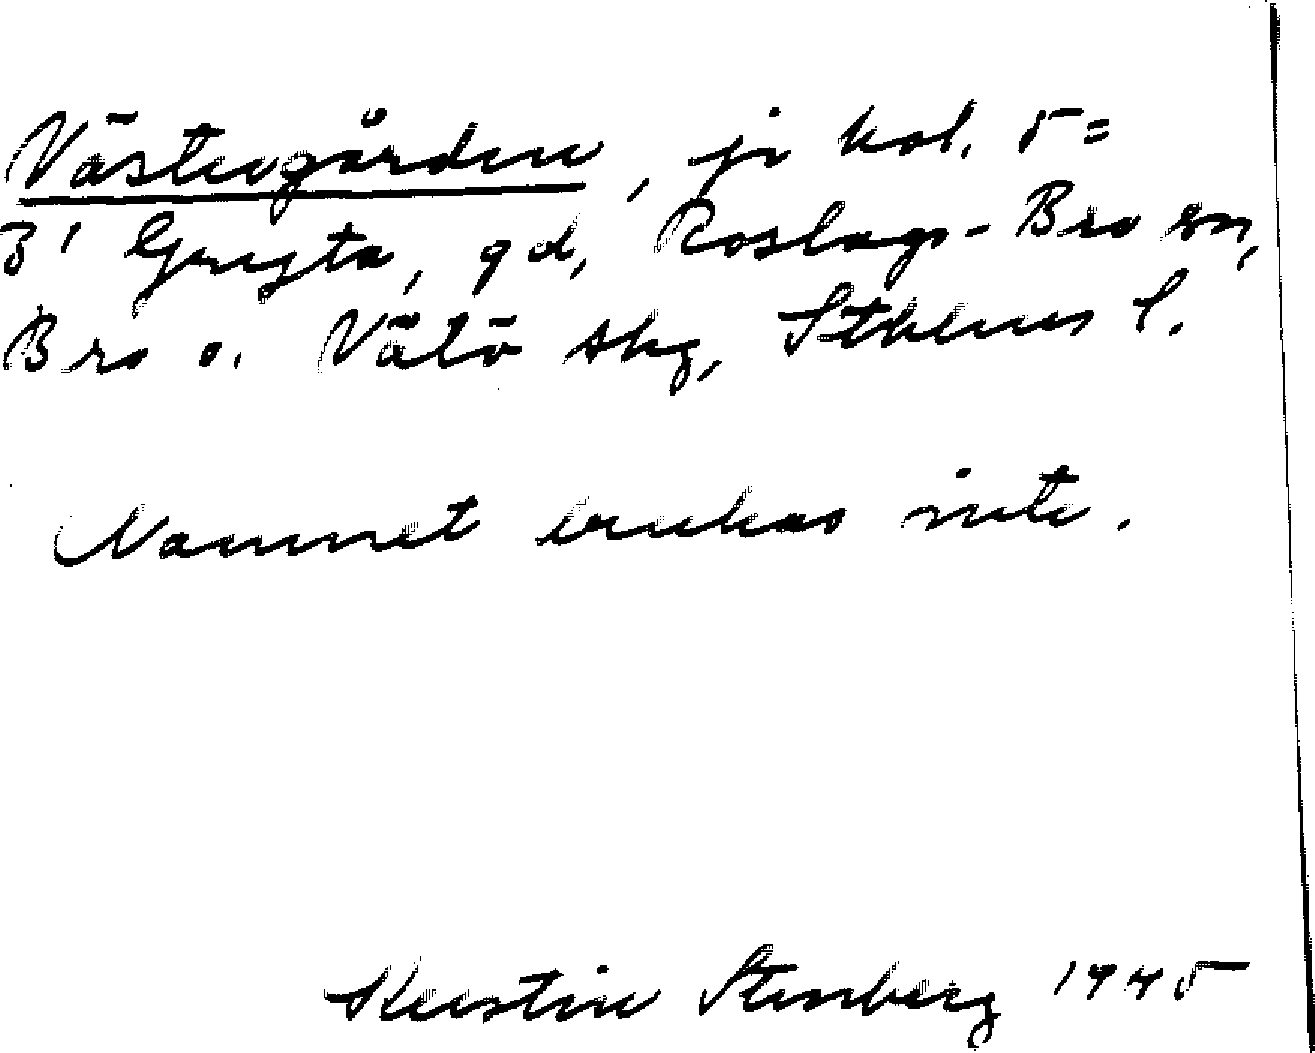 Västergården, jr kol. 5=
3¹ Grysta, gd, Roslags-Bro sn,
Bro o. Vätö skg, Sthlms l.
Namnet brukas inte.
Kerstin Stenberg 1945